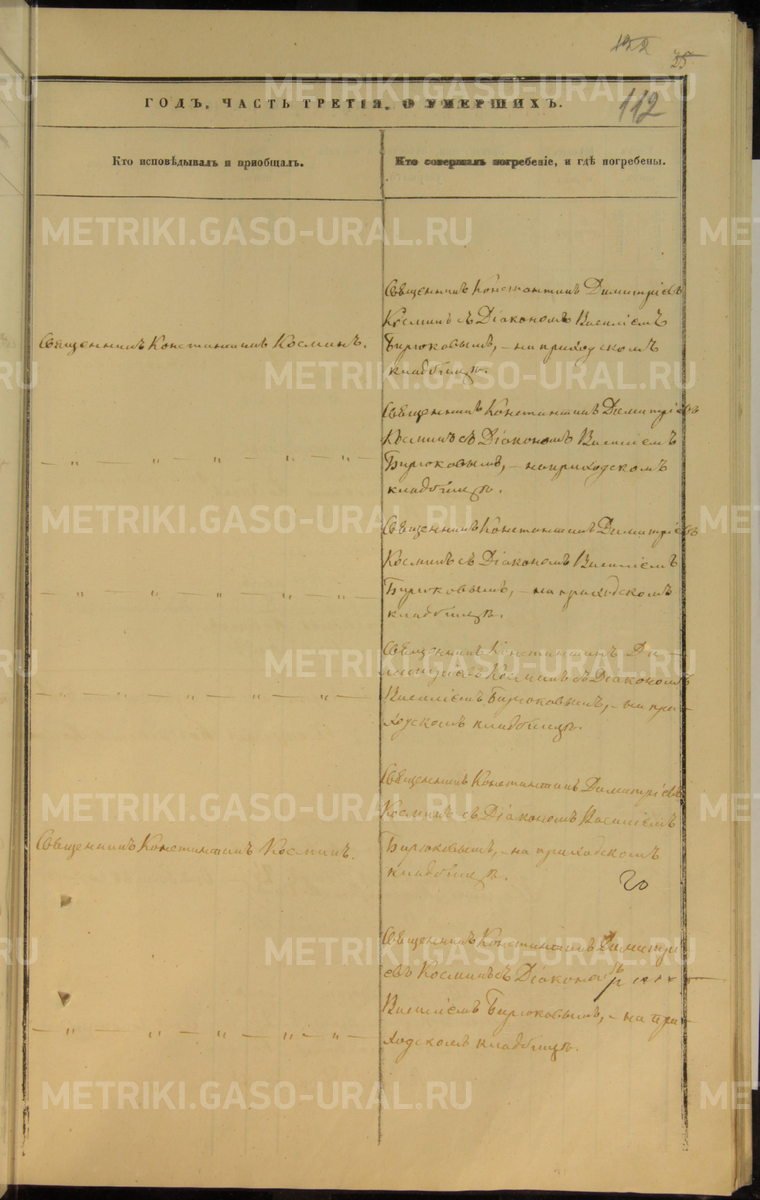 122
25
ГОДЪ, ЧАСТЬ ТРЕТІЯ, О УМЕРШИХЪ.
112
Кто исповѣдывалъ и приобщалъ.
Кто совершалъ погребеніе, и гдѣ погребены.
Священникъ Константинъ Димитріевъ
Косминъ съ Діакономъ Василіемъ
Священникъ Константинъ Косминъ.
Бирюковымъ, – на приходскомъ
кладбищѣ.
Священникъ Константинъ Димитріевъ
Косминъ съ Діакономъ Василіемъ
— „ — „ — „ — „ —
Бирюковымъ, – на приходскомъ
кладбищѣ.
Священникъ Константинъ Димитріевъ
Косминъ съ Діакономъ Василіемъ
— „ — „ — „ — „ —
Бирюковымъ, – на приходскомъ
кладбищѣ.
Священникъ Константинъ Ди-
митріевъ Косминъ съ Діакономъ
— „ — „ — „ — „ —
Василіемъ Бирюковымъ, – на при-
ходскомъ кладбищѣ.
Священникъ Константинъ Димитріевъ
Косминъ съ Діакономъ Василіемъ
Священникъ Константинъ Косминъ.
Бирюковымъ, – на приходскомъ
кладбищѣ.
Священникъ Константинъ Димитрі-
евъ Косминъ съ Діакономъ
Василіемъ Бирюковымъ, – на при-
— „ — „ — „ — „ —
ходскомъ кладбищѣ.
METRIKI.GASO-URAL.RU